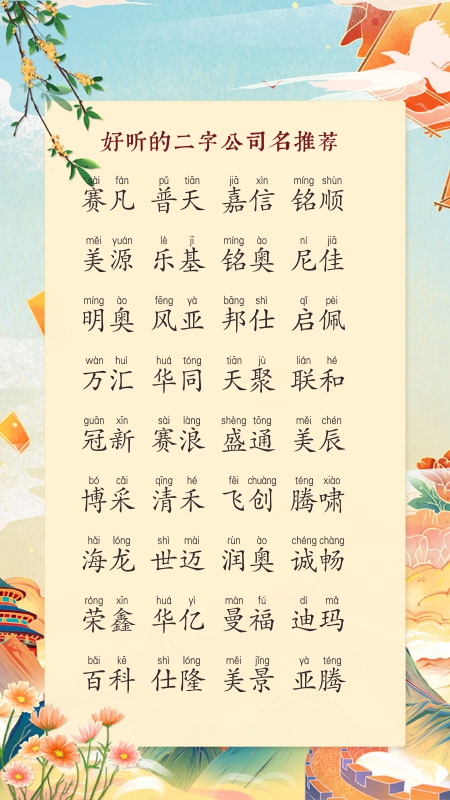 好听的二字公司名推荐
sài fán pǔ tiān jiā xìn míng shùn
赛凡 普天 嘉信 铭顺
měi yuán lè jī míng ào ní jiā
美源 乐基 铭奥 尼佳
míng ào fēng yà bāng shì qǐ pèi
明奥 风亚 邦仕 启佩
wàn huì huá tóng tiān jù lián hé
万汇 华同 天聚 联和
guān xīn sài làng shèng tōng měi chén
冠新 赛浪 盛通 美辰
bó cǎi qīng hé fēi chuàng téng xiào
博采 清禾 飞创 腾啸
hǎi lóng shì mài rùn ào chéng chàng
海龙 世迈 润奥 诚畅
róng xīn huá yì màn fú dí mǎ
荣鑫 华亿 曼福 迪玛
bǎi kē shì lóng měi jǐng yà téng
百科 仕隆 美景 亚腾